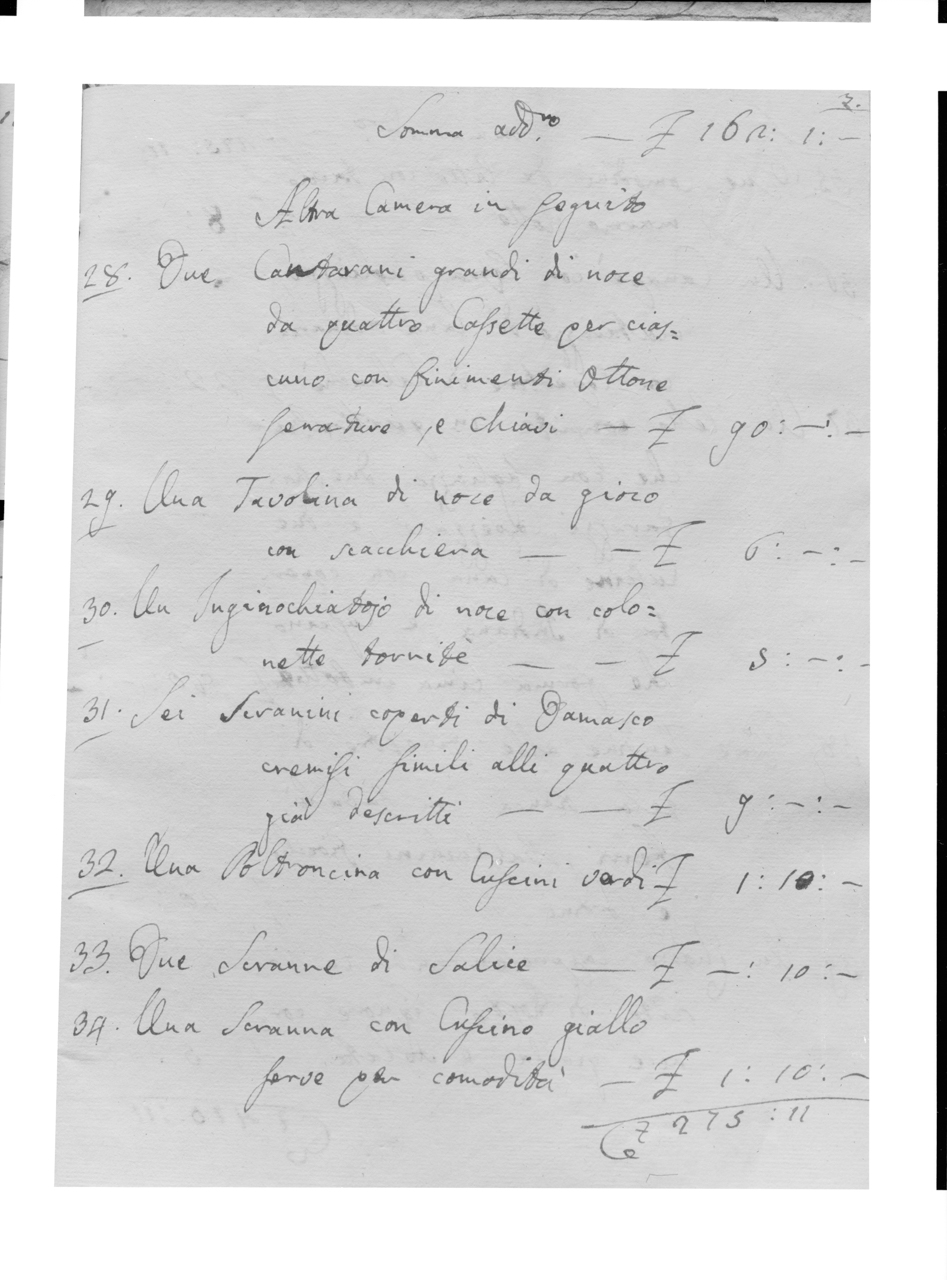 7.
Somma add.ro — £ 162: 1: —
Altra Camera in seguito
28. Due Cantarani grandi di noce
da quattro Cassette per cias=
cuno con finimenti Ottone
serrature, e chiavi — £ 90: —: —
29. Una Tavolina di noce da gioco
con scacchiera — — £ 6: —: —
30. Un Inginochiatojo di noce con colo=
nette tornite — — £ 5: —: —
31. Sei Scranini coperti di Damasco
cremisi simili alli quattro
già descritti — — £ 9: —: —
32. Una Poltroncina con Cuscini verdi £ 1: 10: —
33. Due Scranne di Salice — £ —: 10: —
34. Una Scranna con Cuscino giallo
serve per comodità — £ 1: 10: —
£ 275: 11